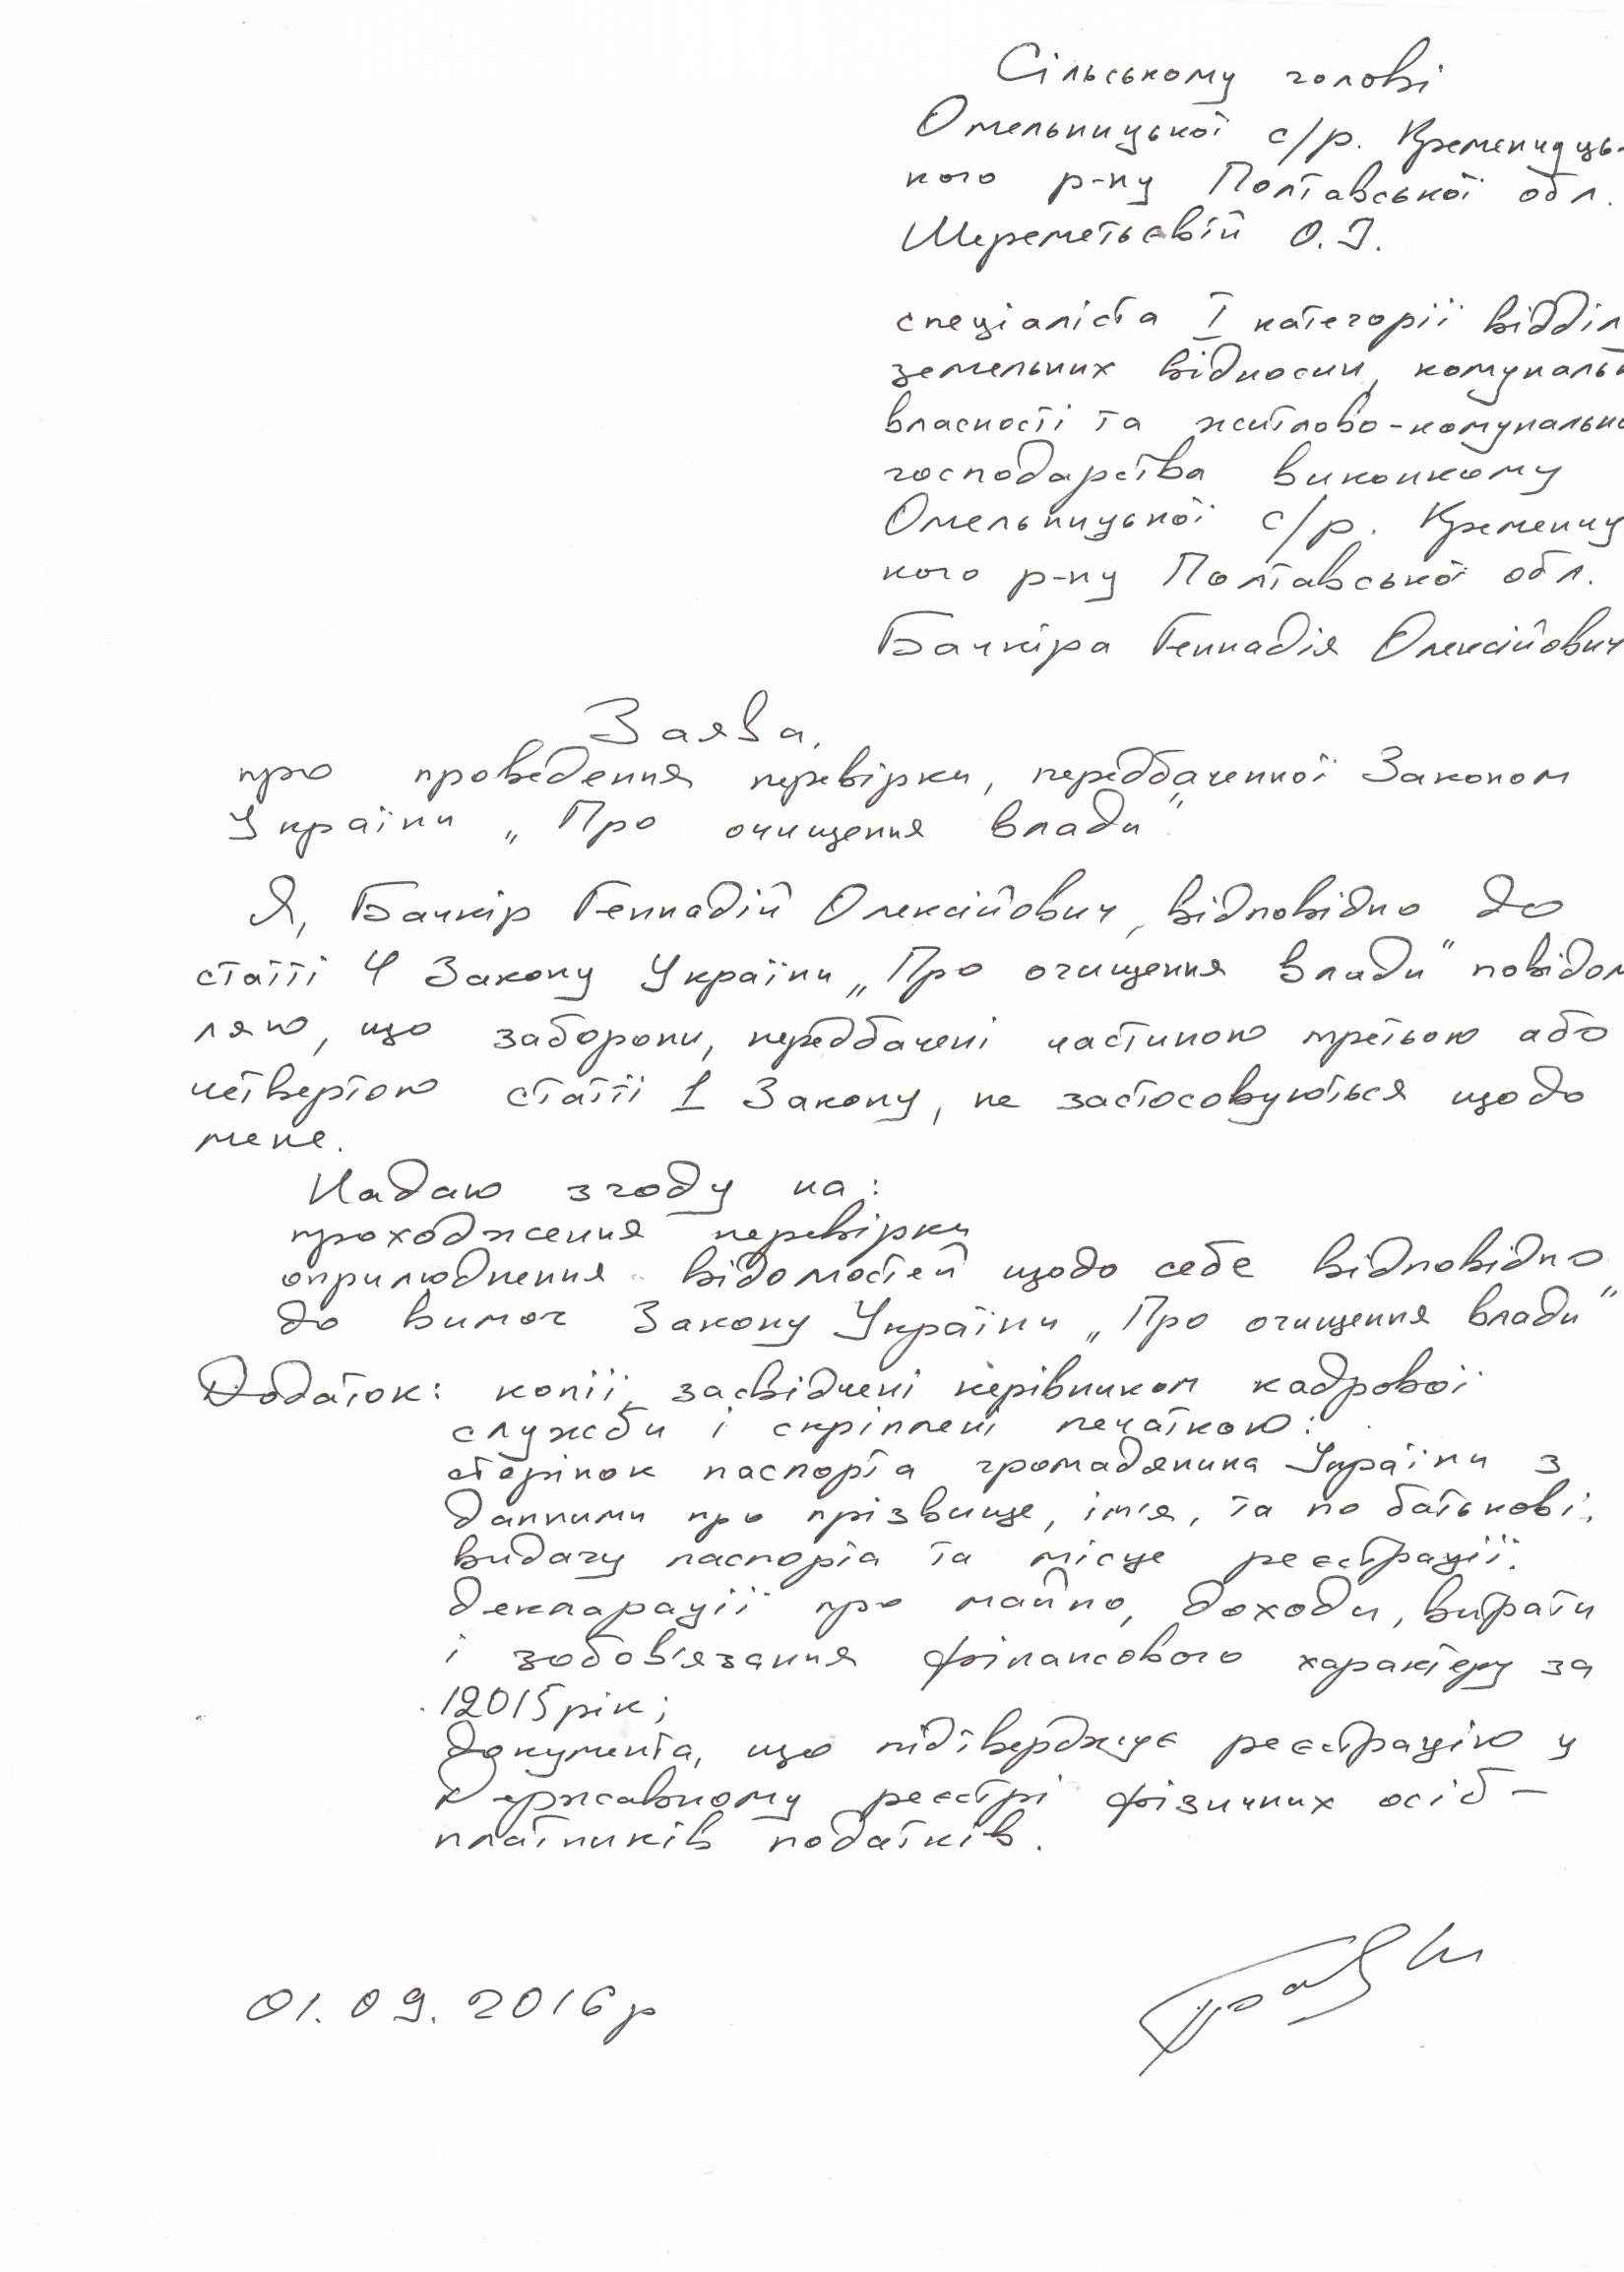 Сільському голові
Омельницької с/р. Кременчуць-
кого р-ну Полтавської обл.
Шереметьєвій О.І.
спеціаліста І категорії відділ
земельних відносин, комуналь
власності та житлово-комунально
господарства виконкому
Омельницької с/р. Кременчу
кого р-ну Полтавської обл.
Бачкіра Геннадія Олексійович
Заява,
про проведення перевірки, передбаченної Законом
України „Про очищення влади"
Я, Бачкір Геннадій Олексійович, відповідно до
статті 4 Закону України „Про очищення влади" повідом
ляю, що заборони, передбачені частиною третьою або
четвертою статті 1 Закону, не застосовуються щодо
мене.
Надаю згоду на:
проходження перевірки
оприлюднення відомостей щодо себе відповідно
до вимог Закону України „Про очищення влади"
Додаток: копії, засвідчені керівником кадрової
служби і скріплені печаткою:
сторінок паспорта громадянина України з
данними про прізвище, ім'я, та по батькові,
видачу паспорта та місце реєстрації.
декларації про майно, доходи, витрати
і зобов'язання фінансового характеру за
2015 рік;
документа, що підтверджує реєстрацію у
Державному реєстрі фізичних осіб -
платників податків.
01.09.2016р